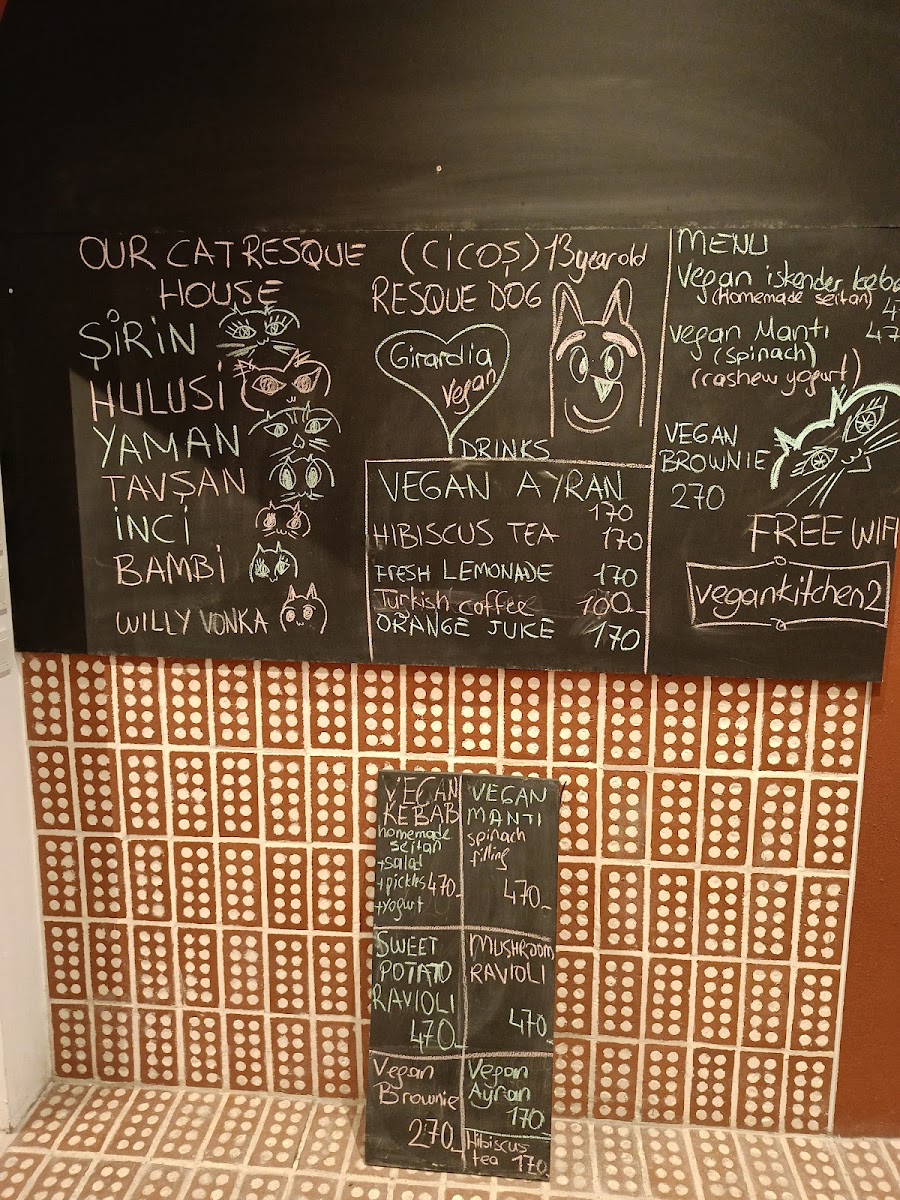 OUR CAT RESQUE
HOUSE
ŞİRİN
HULUSİ
YAMAN
TAVŞAN
İNCİ
BAMBİ
WILLY VONKA
(CiCOŞ) 13 year old
RESQUE DOG
Girardia
Vegan
DRINKS
VEGAN AYRAN
170
HIBISCUS TEA 170
FRESH LEMONADE 170
Turkish coffee 100-
ORANGE JUKE 170
MENU
Vegan iskender keba
(Homemade seitan)
47
vegan Mantı 47
(spinach)
(cashew yogurt)
VEGAN
BROWNIE
270
FREE WIFI
vegankitchen2
VEGAN
KEBAB
homemade
seitan
+salad
+pickles 470-
+yogurt
VEGAN
MANTI
spinach
filling
470-
SWEET
POTATO
RAVIOLI
470-
MUSHROOM
RAVIOLI
470
Vegan
Brownie
270-
Vegan
Ayran
170
Hibiscus
tea 170